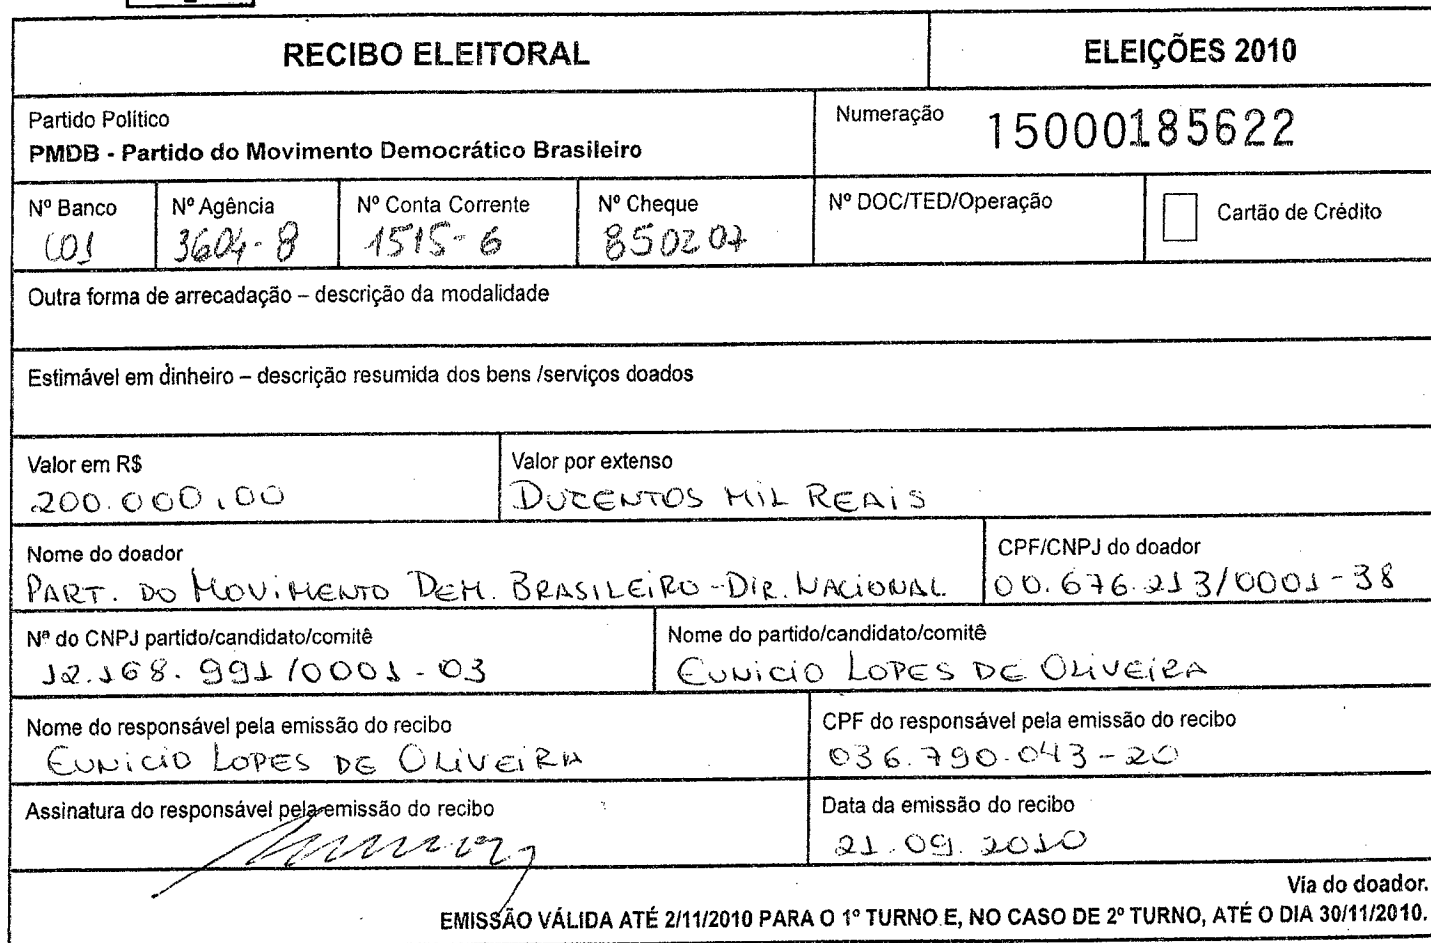 RECIBO ELEITORAL
ELEIÇÕES 2010
Partido Político
PMDB - Partido do Movimento Democrático Brasileiro
Numeração 15000185622
Nº Banco
001
Nº Agência
3604-8
Nº Conta Corrente
1515-6
Nº Cheque
850207
Nº DOC/TED/Operação
Cartão de Crédito
Outra forma de arrecadação – descrição da modalidade
Estimável em dinheiro – descrição resumida dos bens /serviços doados
Valor em R$
200.000,00
Valor por extenso
DUZENTOS MIL REAIS
Nome do doador
PART. DO MOVIMENTO DEM. BRASILEIRO-DIR. NACIONAL
CPF/CNPJ do doador
00.676.213/0001-38
Nª do CNPJ partido/candidato/comitê
12.168.991/0001-03
Nome do partido/candidato/comitê
EUNICIO LOPES DE OLIVEIRA
Nome do responsável pela emissão do recibo
EUNICIO LOPES DE OLIVEIRA
CPF do responsável pela emissão do recibo
036.790.043-20
Assinatura do responsável pela emissão do recibo
Data da emissão do recibo
21.09.2010
Via do doador.
EMISSÃO VÁLIDA ATÉ 2/11/2010 PARA O 1º TURNO E, NO CASO DE 2º TURNO, ATÉ O DIA 30/11/2010.